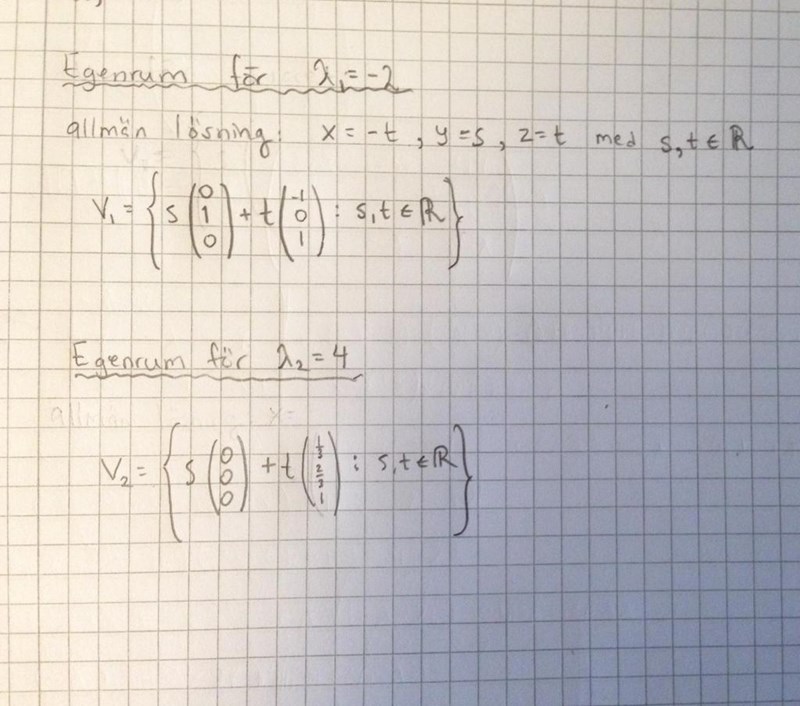 Egenrum för λ₁=-2
allmän lösning: x = -t , y=s , z=t med s,t ∈ ℝ
V₁ = { s (0 1 0) + t (-1 0 1) : s,t ∈ ℝ }
Egenrum för λ₂=4
V₂ = { s (0 0 0) + t (1/3 2/3 1) : s,t ∈ ℝ }